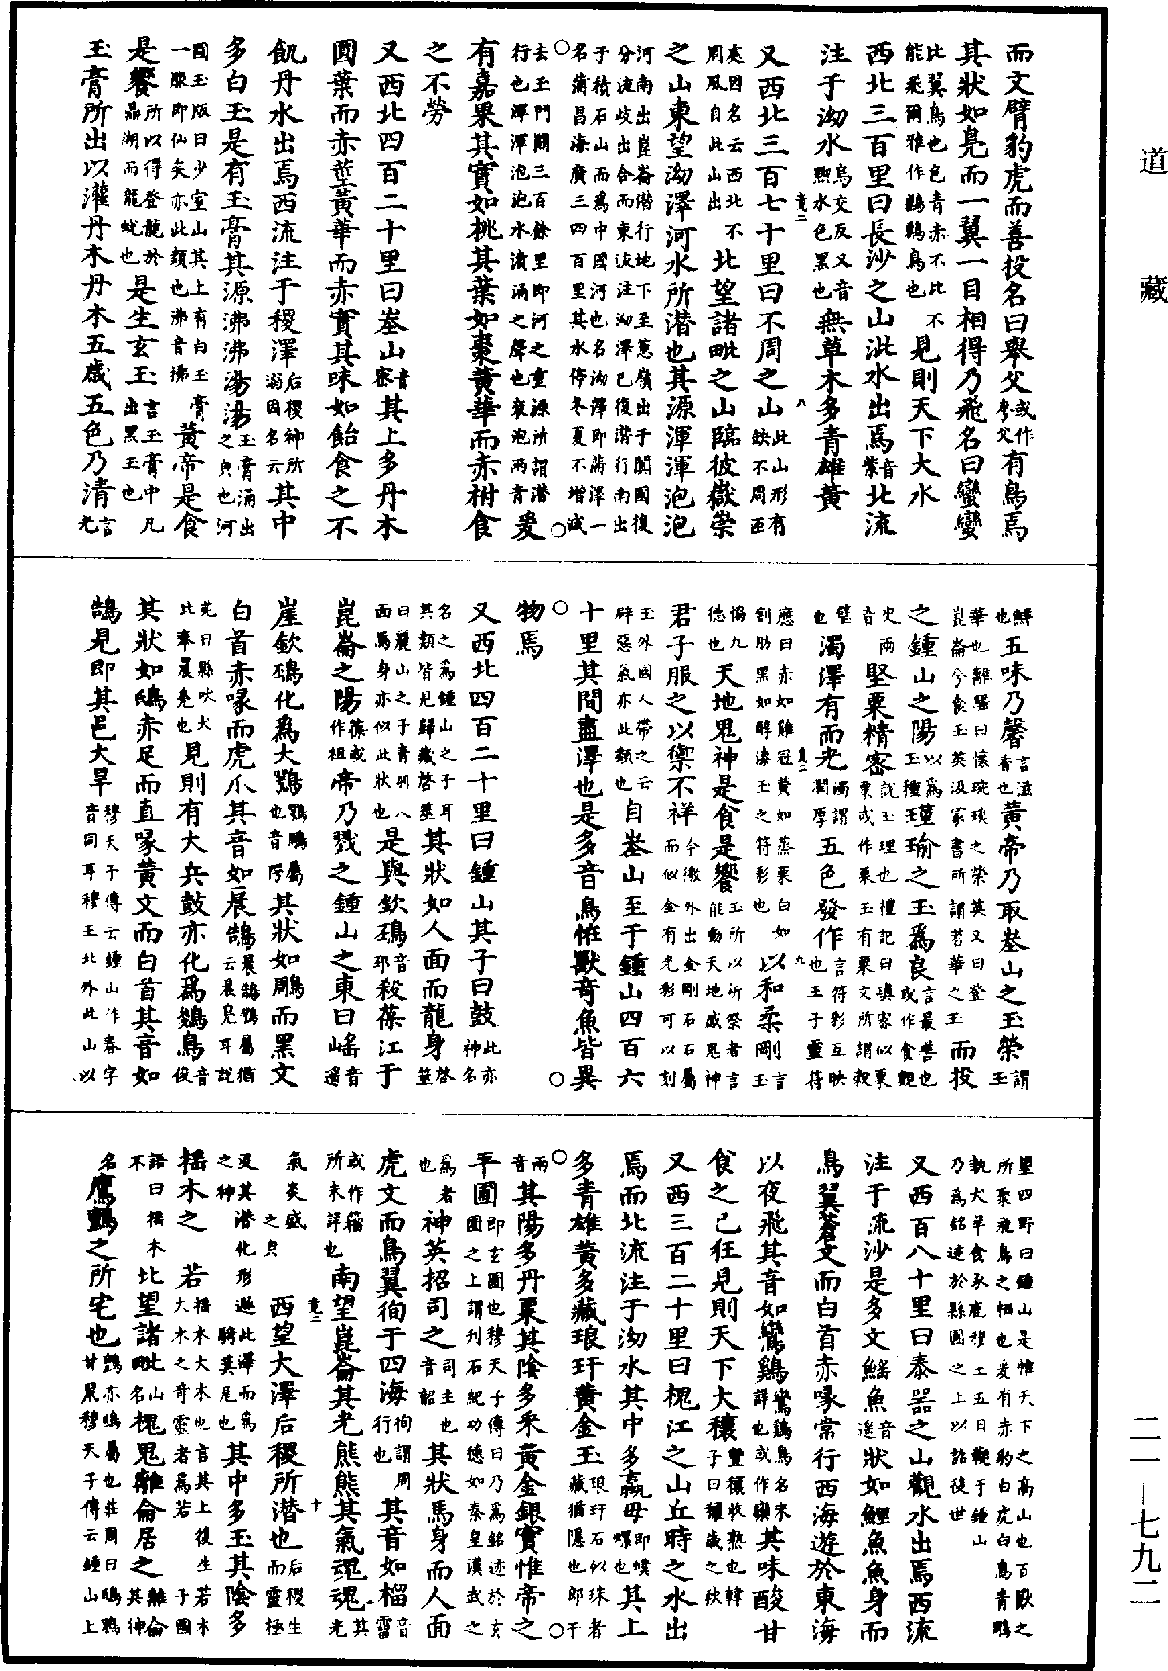 道藏
二一—七九二
而文臂豹虎而善投名曰舉父或作夸父有鳥焉
其狀如鳧而一翼一目相得乃飛名曰蠻蠻
比翼鳥也色青赤不比不能飛爾雅作鶼鶼鳥也見則天下大水
西北三百里曰長沙之山泚水出焉音紫北流
注于泑水烏交反又音黝水色黑也無草木多青雄黃
又西北三百七十里曰不周之山此山形有缺不周匝
處因名云西北不周風自此山出北望諸毗之山臨彼嶽崇
之山東望泑澤河水所潜也其源渾渾泡泡
河南出崑崙潜行地下至葱嶺出于闐國復分流歧出合而東注泑澤已復潜行南出
于積石山而爲中國河也名泑澤即蒲澤一名蒲昌海廣三四百里其水停冬夏不增減
去玉門關三百餘里即河之重源所謂潜行也渾渾泡泡水濆涌之聲也袞泡兩音爰
有嘉果其實如桃其葉如棗黃華而赤柎食
之不勞
又西北四百二十里曰峚山音密其上多丹木
圓葉而赤莖黃華而赤實其味如飴食之不
飢丹水出焉西流注于稷澤后稷神所溺因名云其中
多白玉是有玉膏其源沸沸湯湯玉膏涌出之皃也河
圖玉版曰少室山其上有白玉膏一服即仙矣亦此類也沸音拂黃帝是食
是饗所以得登龍於鼎湖而龍蛻也是生玄玉言玉膏中凡出黑玉也
玉膏所出以灌丹木丹木五歲五色乃清言光
鮮也五味乃馨言滋香也黃帝乃取峚山之玉榮謂玉
華也離騷曰懷琬琰之榮英又曰登崑崙兮食玉英汲冢書所謂苕華之玉而投
之鍾山之陽以爲玉種瑾瑜之玉爲良言最善也或作食覲
臾兩音堅栗精密說玉理也禮記曰瑱密似栗栗或作栗玉有栗文所謂穀
璧也濁澤有而光濁謂潤厚五色發作言符彩互映也王子靈符
應曰赤如雞冠黃如蒸栗白如割肪黑如醇漆玉之符彩也以和柔剛言玉
協九德也天地鬼神是食是饗玉所以祈祭者言能動天地感鬼神
君子服之以禦不祥今徼外出金剛石石屬而似金有光彩可以刻
玉外國人帶之云辟惡氣亦此類也自峚山至于鍾山四百六
十里其間盡澤也是多音鳥怪獸奇魚皆異
物焉
又西北四百二十里曰鍾山其子曰鼓此亦神名
名之爲鍾山之子耳其類皆見歸藏啓筮其狀如人面而龍身啓筮
曰麗山之子青羽人面馬身亦似此狀也是與欽䲹音邳殺葆江于
崑崙之陽葆或作祖帝乃戮之鍾山之東曰㟙音遙
崖欽䲹化爲大鶚鶚鵰屬也音愕其狀如鵰而黑文
白首赤喙而虎爪其音如晨鵠晨鵠鶚屬猶云晨鳧耳說
苑曰縣吠犬比奉晨鳧也見則有大兵鼓亦化爲鵕鳥音俊
其狀如鴟赤足而直喙黃文而白首其音如
鵠見即其邑大旱穆天子傳云鍾山作舂字音同耳穆王北升此山以
望四野曰鍾山是惟天下之高山也百獸之所聚飛鳥之栖也爰有赤豹白虎白鳥青鵰
執犬羊食豕鹿穆王五日觀于鍾山乃爲銘迹於縣圃之上以詔後世
又西百八十里曰泰器之山觀水出焉西流
注于流沙是多文鰩魚音遙狀如鯉魚魚身而
鳥翼蒼文而白首赤喙常行西海遊於東海
以夜飛其音如鸞鷄鸞鷄鳥名未詳也或作欒其味酸甘
食之已狂見則天下大穰豐穰收熟也韓子曰穰歲之秋
又西三百二十里曰槐江之山丘時之水出
焉而北流注于泑水其中多蠃母即蜁螺也其上
多青雄黃多藏琅玕黃金玉琅玕石似珠者藏猶隱也郎干
兩音其陽多丹粟其陰多采黃金銀實惟帝之
平圃即玄圃也穆天子傳曰乃爲銘迹於玄圃之上謂刊石紀功德如秦皇漢武之
爲者也神英招司之司主也音韶其狀馬身而人面
虎文而鳥翼徇于四海徇謂周行也其音如榴音留
或作籀所未詳也南望崑崙其光熊熊其氣魂魂其光
氣炎盛之皃西望大澤后稷所潜也后稷生而靈極
及其潜化形遯此澤而爲之神騎箕尾也其中多玉其陰多
榣木之有若榣木大木也言其上復生若木大木之奇靈者爲若子國
語曰榣木不生花也北望諸毗山名槐鬼離侖居之離侖其神
名鷹鸇之所宅也鸇亦鴟屬也莊周曰鴟鴉甘鼠穆天子傳云鍾山上